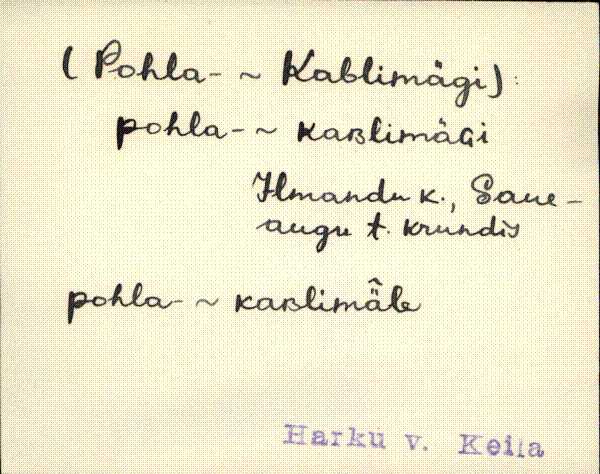 (Pohla- ~ Kablimägi)
pohla- ~ kaʙlimäɢi
Ilmandu k., Saue-
augu t. krundis
pohla- ~ kaʙlimä̂le
Harku v. Keila